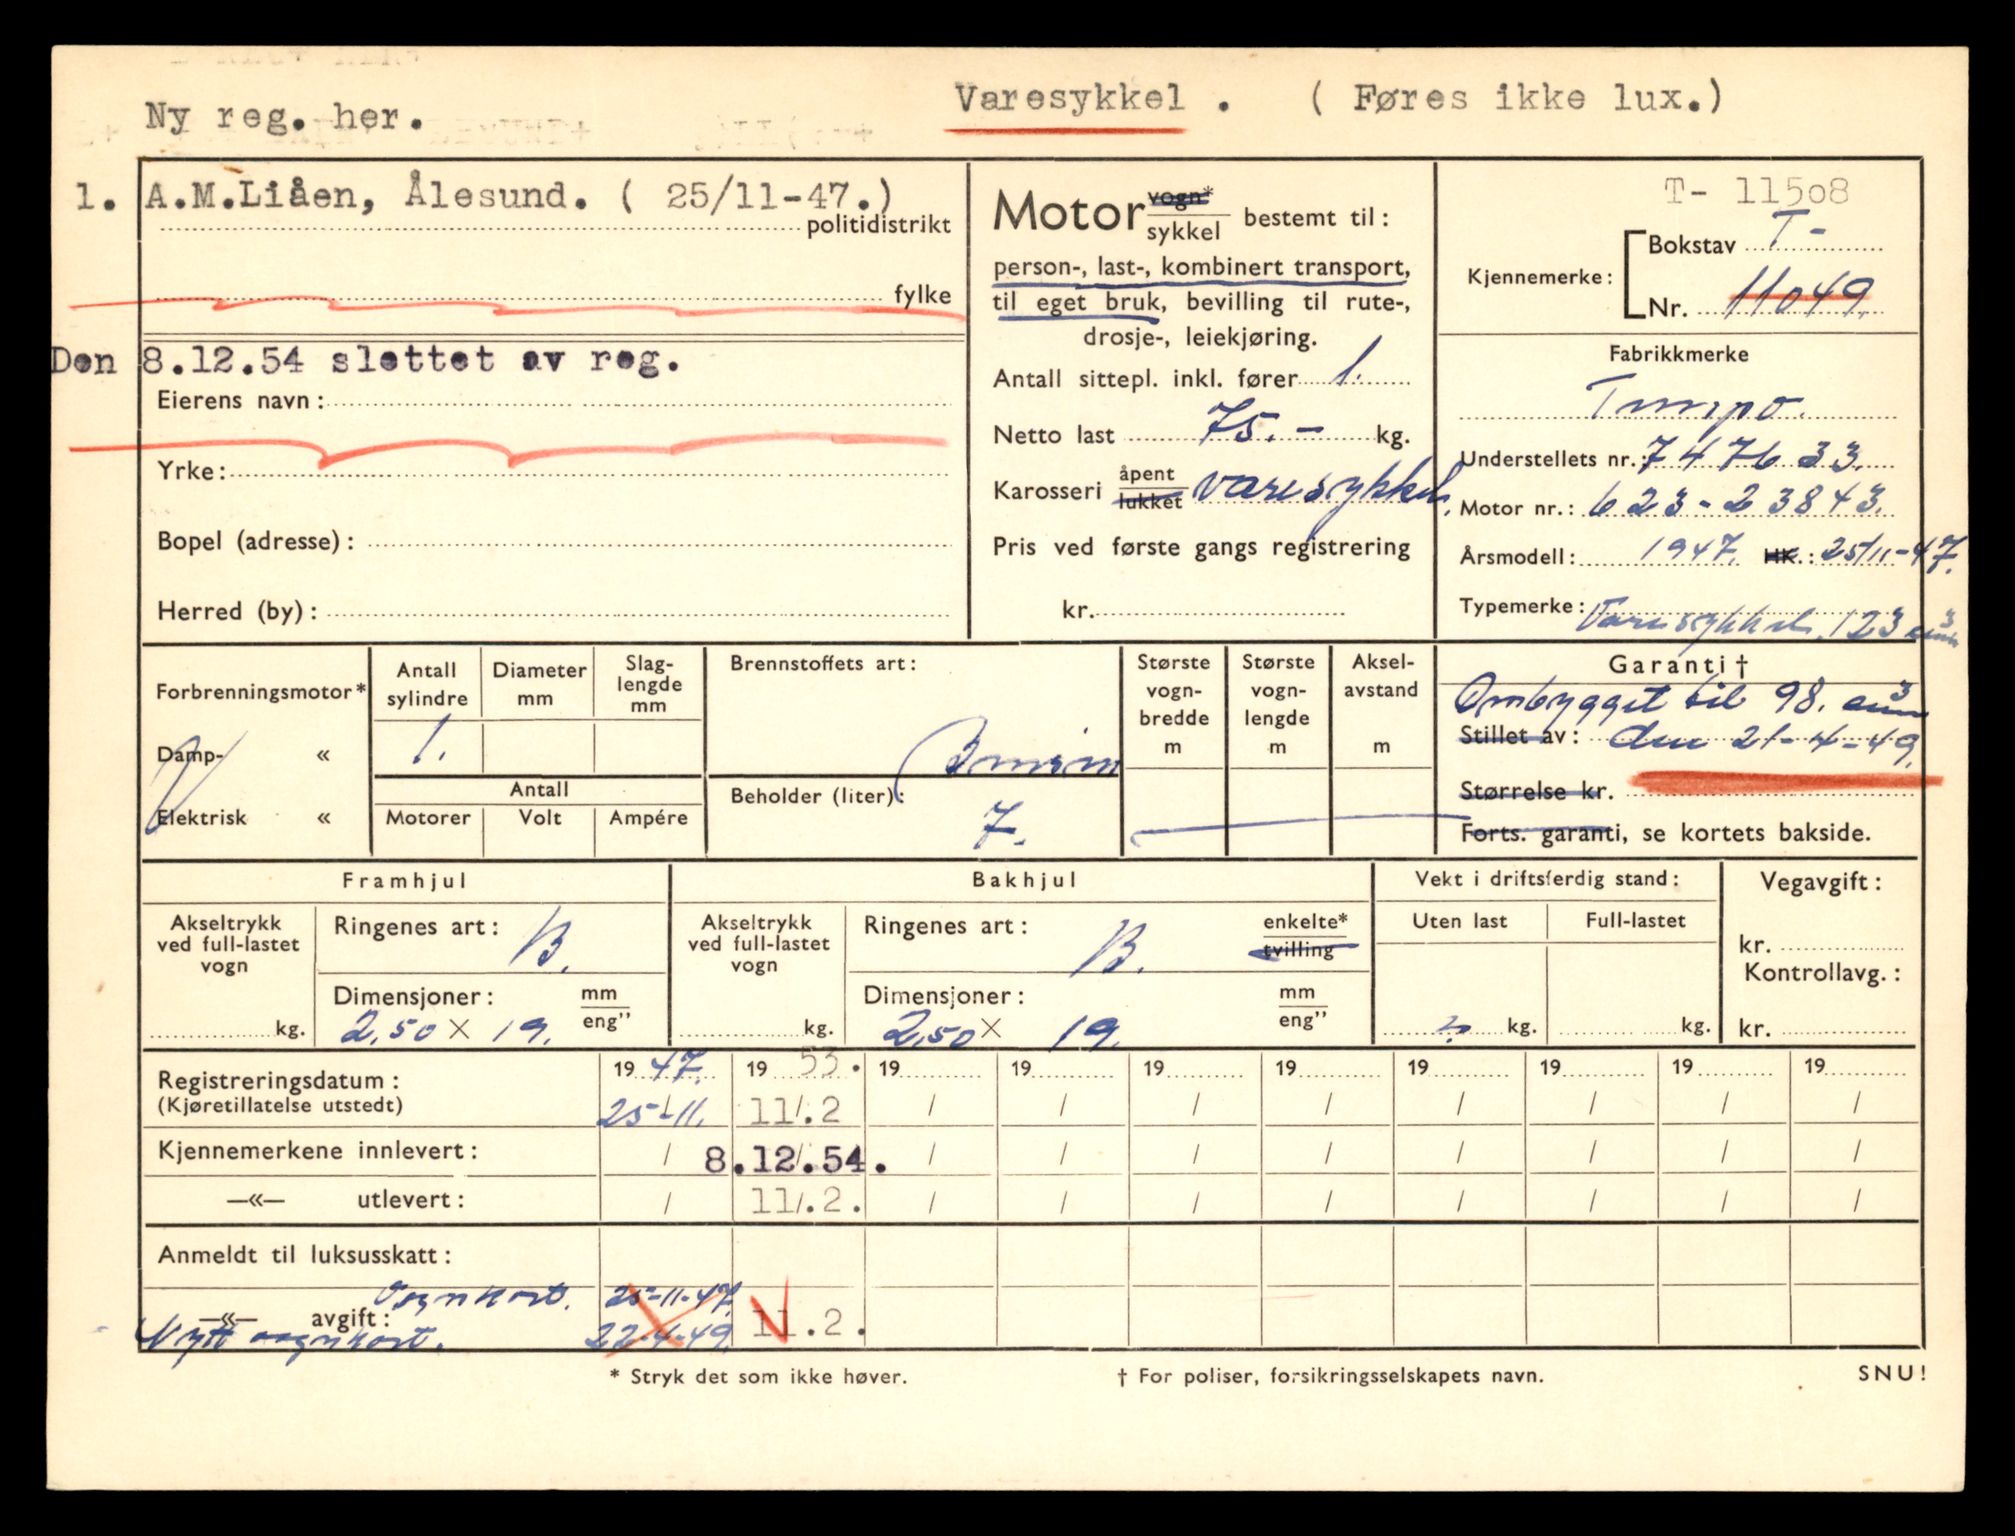 Ny reg. her.
Varesykkel . ( Føres ikke lux.)
1. A.M.Liåen, Ålesund. ( 25/11-47.)
politidistrikt
fylke
Den 8.12.54 slettet av reg.
Eierens navn:
Yrke:
Bopel (adresse):
Herred (by):
Motor vogn* sykkel bestemt til:
person-, last-, kombinert transport,
til eget bruk, bevilling til rute-,
drosje-, leiekjøring.
Antall sittepl. inkl. fører 1.
Netto last 75.- kg.
Karosseri åpent lukket varesykkel.
Pris ved første gangs registrering
kr.
T- 11508
Kjennemerke: Bokstav T-
Nr. 11049.
Fabrikkmerke
Tempo.
Understellets nr.: 747633.
Motor nr.: 623-23843.
Årsmodell: 1947. HK.: 25/11-47.
Typemerke: Varesykkel. 123 cm³
Forbrenningsmotor*
Damp- «
Elektrisk «
Antall sylindre
1.
Diameter mm
Slaglengde mm
Antall
Motorer Volt Ampére
Brennstoffets art:
Bensin
Beholder (liter):
7.
Største vognbredde m
Største vognlengde m
Akselavstand m
Garanti †
Ombygget til 98. cm³
Stillet av: den 21-4-49.
Størrelse kr.
Forts. garanti, se kortets bakside.
Framhjul
Akseltrykk ved full-lastet vogn
kg.
Ringenes art: B.
Dimensjoner: mm eng”
2,50 X 19.
Bakhjul
Akseltrykk ved full-lastet vogn
kg.
Ringenes art: B. enkelte* tvilling
Dimensjoner: mm eng”
2,50 X 19.
Vekt i driftsferdig stand:
Uten last Full-lastet
? kg. kg.
Vegavgift:
kr.
Kontrollavg.:
kr.
Registreringsdatum: 19 47. 19 53. 19 19 19 19 19 19 19 19
(Kjøretillatelse utstedt) 25/-11. 11/.2 / / / / / / / /
Kjennemerkene innlevert: / 8.12.54. / / / / / / / /
—«— utlevert: / 11/.2. / / / / / / / /
Anmeldt til luksusskatt:
Vognkort. 25-11-47.
—«— avgift: 11.2.
Nytt vognkort. 22-4-49.
* Stryk det som ikke høver.
† For poliser, forsikringsselskapets navn.
SNU!